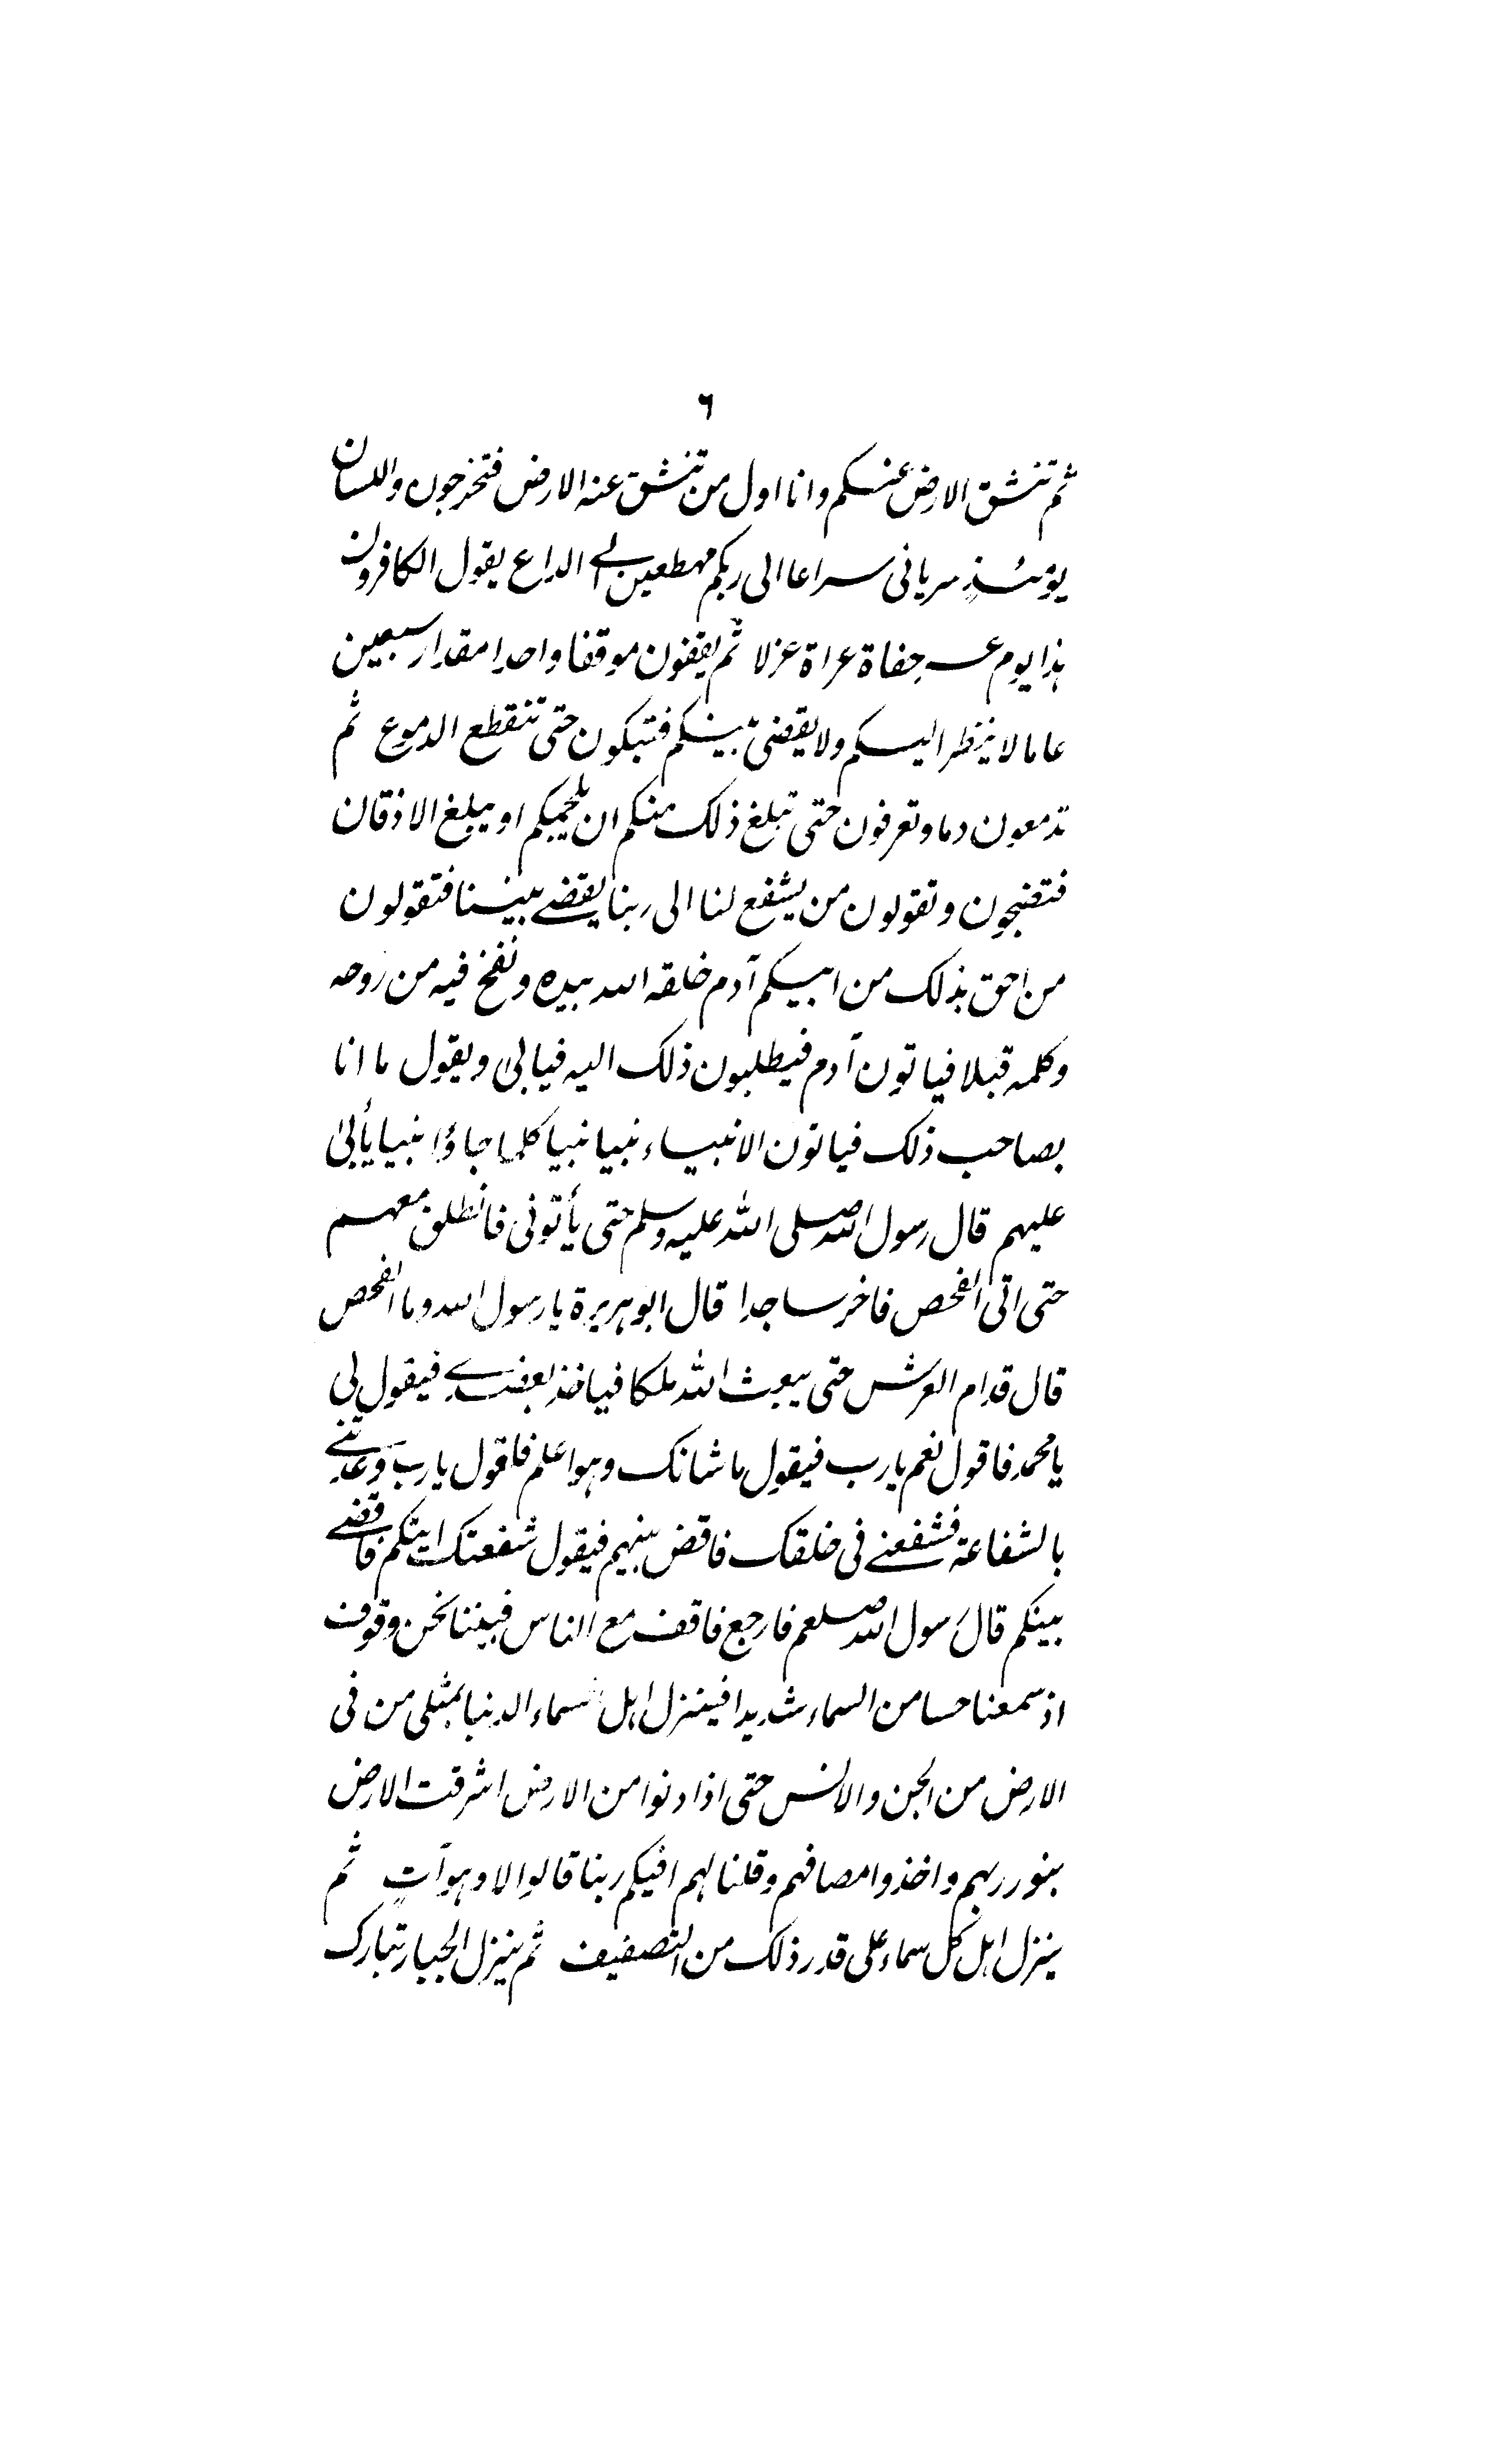 ٦
ثم تنشق الارض عنكم وانا اول من تنشق عنه الارض فتخرجون واللسان
يومئذ سريانى سراعا الى ربكم مهطعين الى الداع يقول الكافرون
هذا يوم عسر حفاة عراة عزلا ثم يقفون موقفا واحدا مقدار سبعين
عاما لا ينظر اليكم ولا يقضى بينكم فتبكون حتى تنقطع الدموع ثم
تدمعون دما وتعرقون حتى تبلغ ذلك منكم ان يلجمكم او يبلغ الاذقان
فتضجون وتقولون من يشفع لنا الى ربنا يقضے بيننا فتقولون
من احق بذلك من ابيكم آدم خلقه الله بيده ونفخ فيه من روحه
وكلمه قبلا فياتون آدم فيطلبون ذلك اليه فيابىٰ ويقول ما انا
بصاحب ذلك فياتون الانبياء نبيا نبيا كلما جاؤا نبيا يأبىٰ
عليهم قال رسول الله صلى الله عليه وسلم حتى يأتونى فانطلق معهم
حتى اتى الفحص فاخر ساجدا قال ابو هريرة يا رسول الله وما الفحص
قال قدام العرش حتى يبعث الله ملكا فياخذ بعضدے فيقول لى
يا محمد فاقول نعم يارب فيقول ما شانك وهو اعلم فاقول يارب وعدتنے
بالشفاعة فشفعنے فى خلقك فاقض بينهم فيقول شفعتك اتيتكم فاقضے
بينكم قال رسول الله صلعم فارجع فاقف مع الناس فبيننا نحن وقوف
اذ سمعنا حسا من السماء شديدا فينزل اهل السماء الدنيا بمثلى من فى
الارض من الجن والانس حتى اذا دنوا من الارض اشرقت الارض
بنور ربهم واخذوا مصافهم وقلنا لهم افيكم ربنا قالوا لا وهو آتٍ ثم
ينزل اهل كل سماء على قدر ذلك من التصفيف ثم ينزل الجبار تبارك